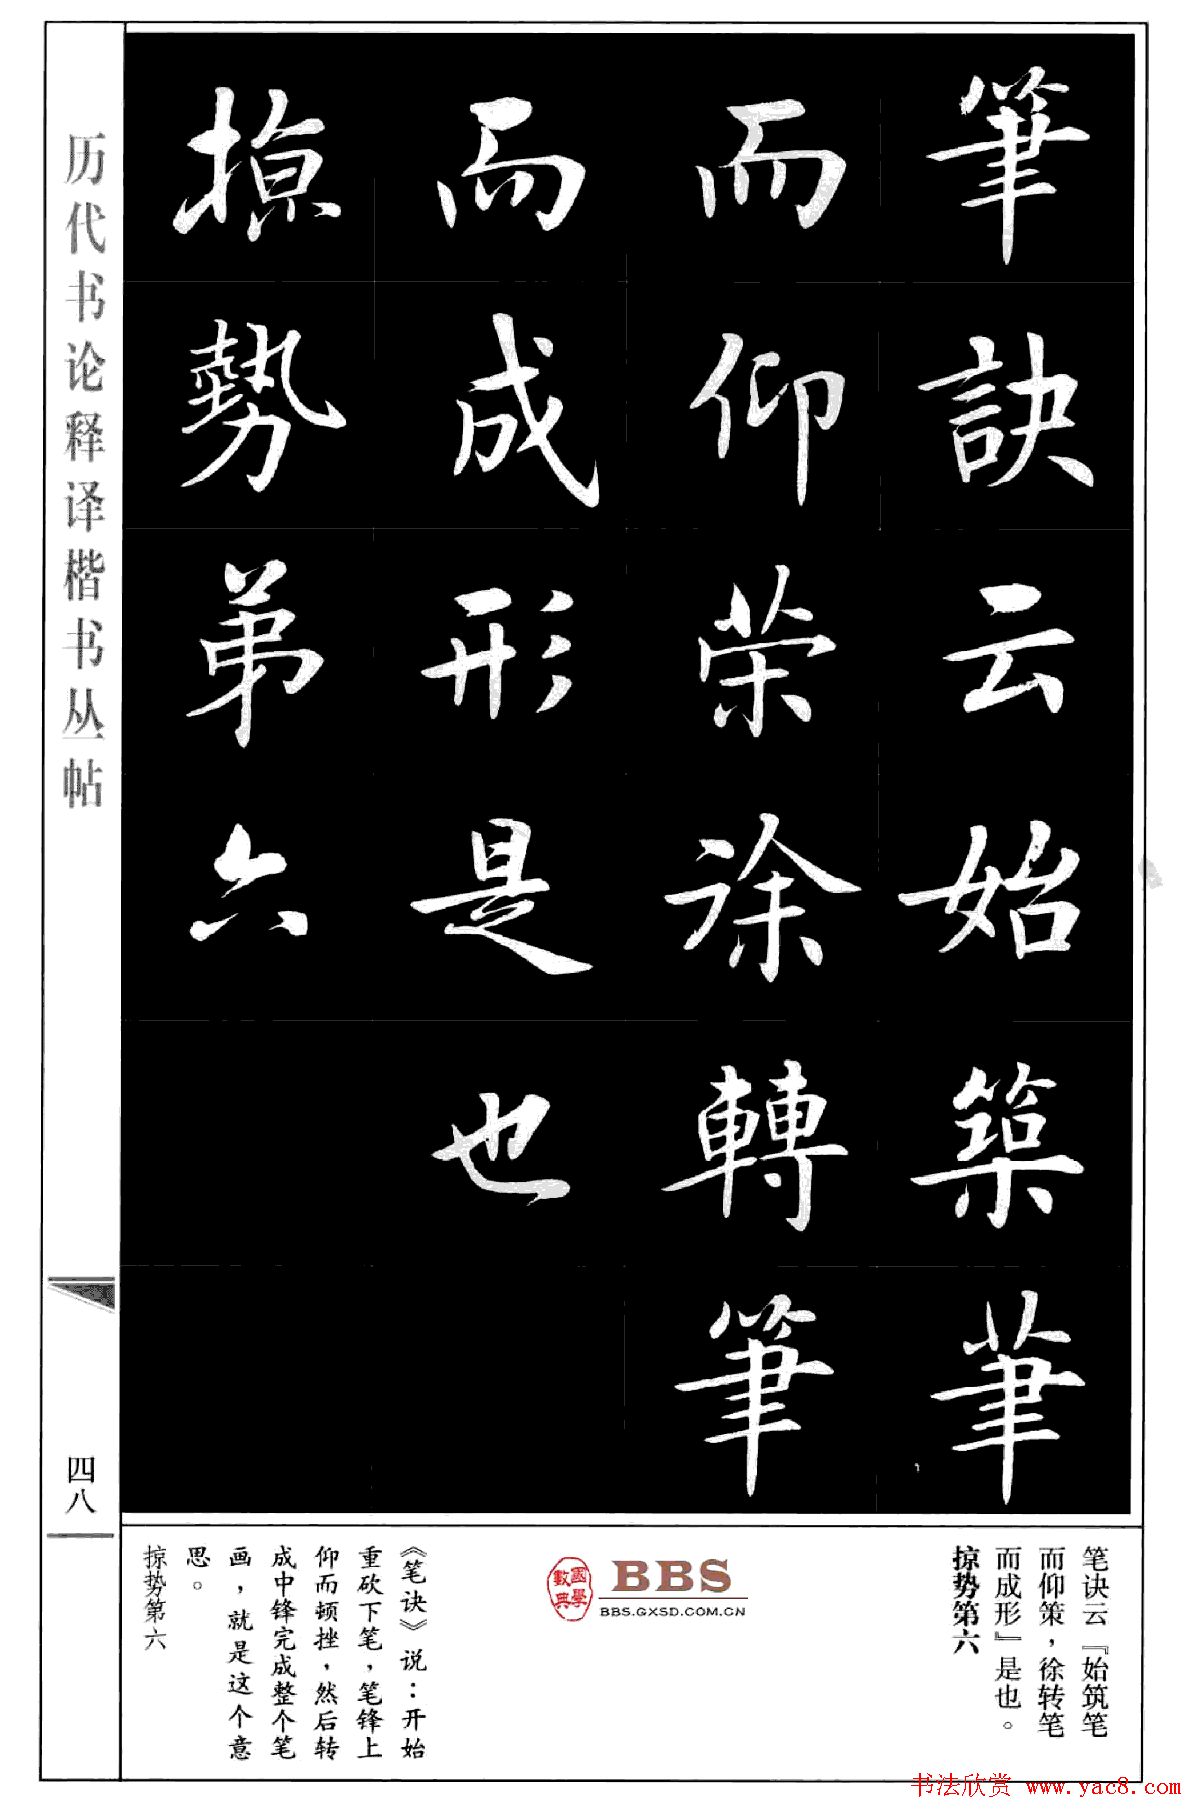 筆訣云始築筆
而仰策徐轉筆
而成形是也
掠勢弟六
历代书论释译楷书丛帖
四八
笔诀云『始筑笔
而仰策，徐转笔
而成形』是也。
掠势第六
BBS
BBS.GXSD.COM.CN
國學
數典
《笔诀》说：开始
重砍下笔，笔锋上
仰而顿挫，然后转
成中锋完成整个笔
画，就是这个意
思。
掠势第六
书法欣赏 www.yac8.com